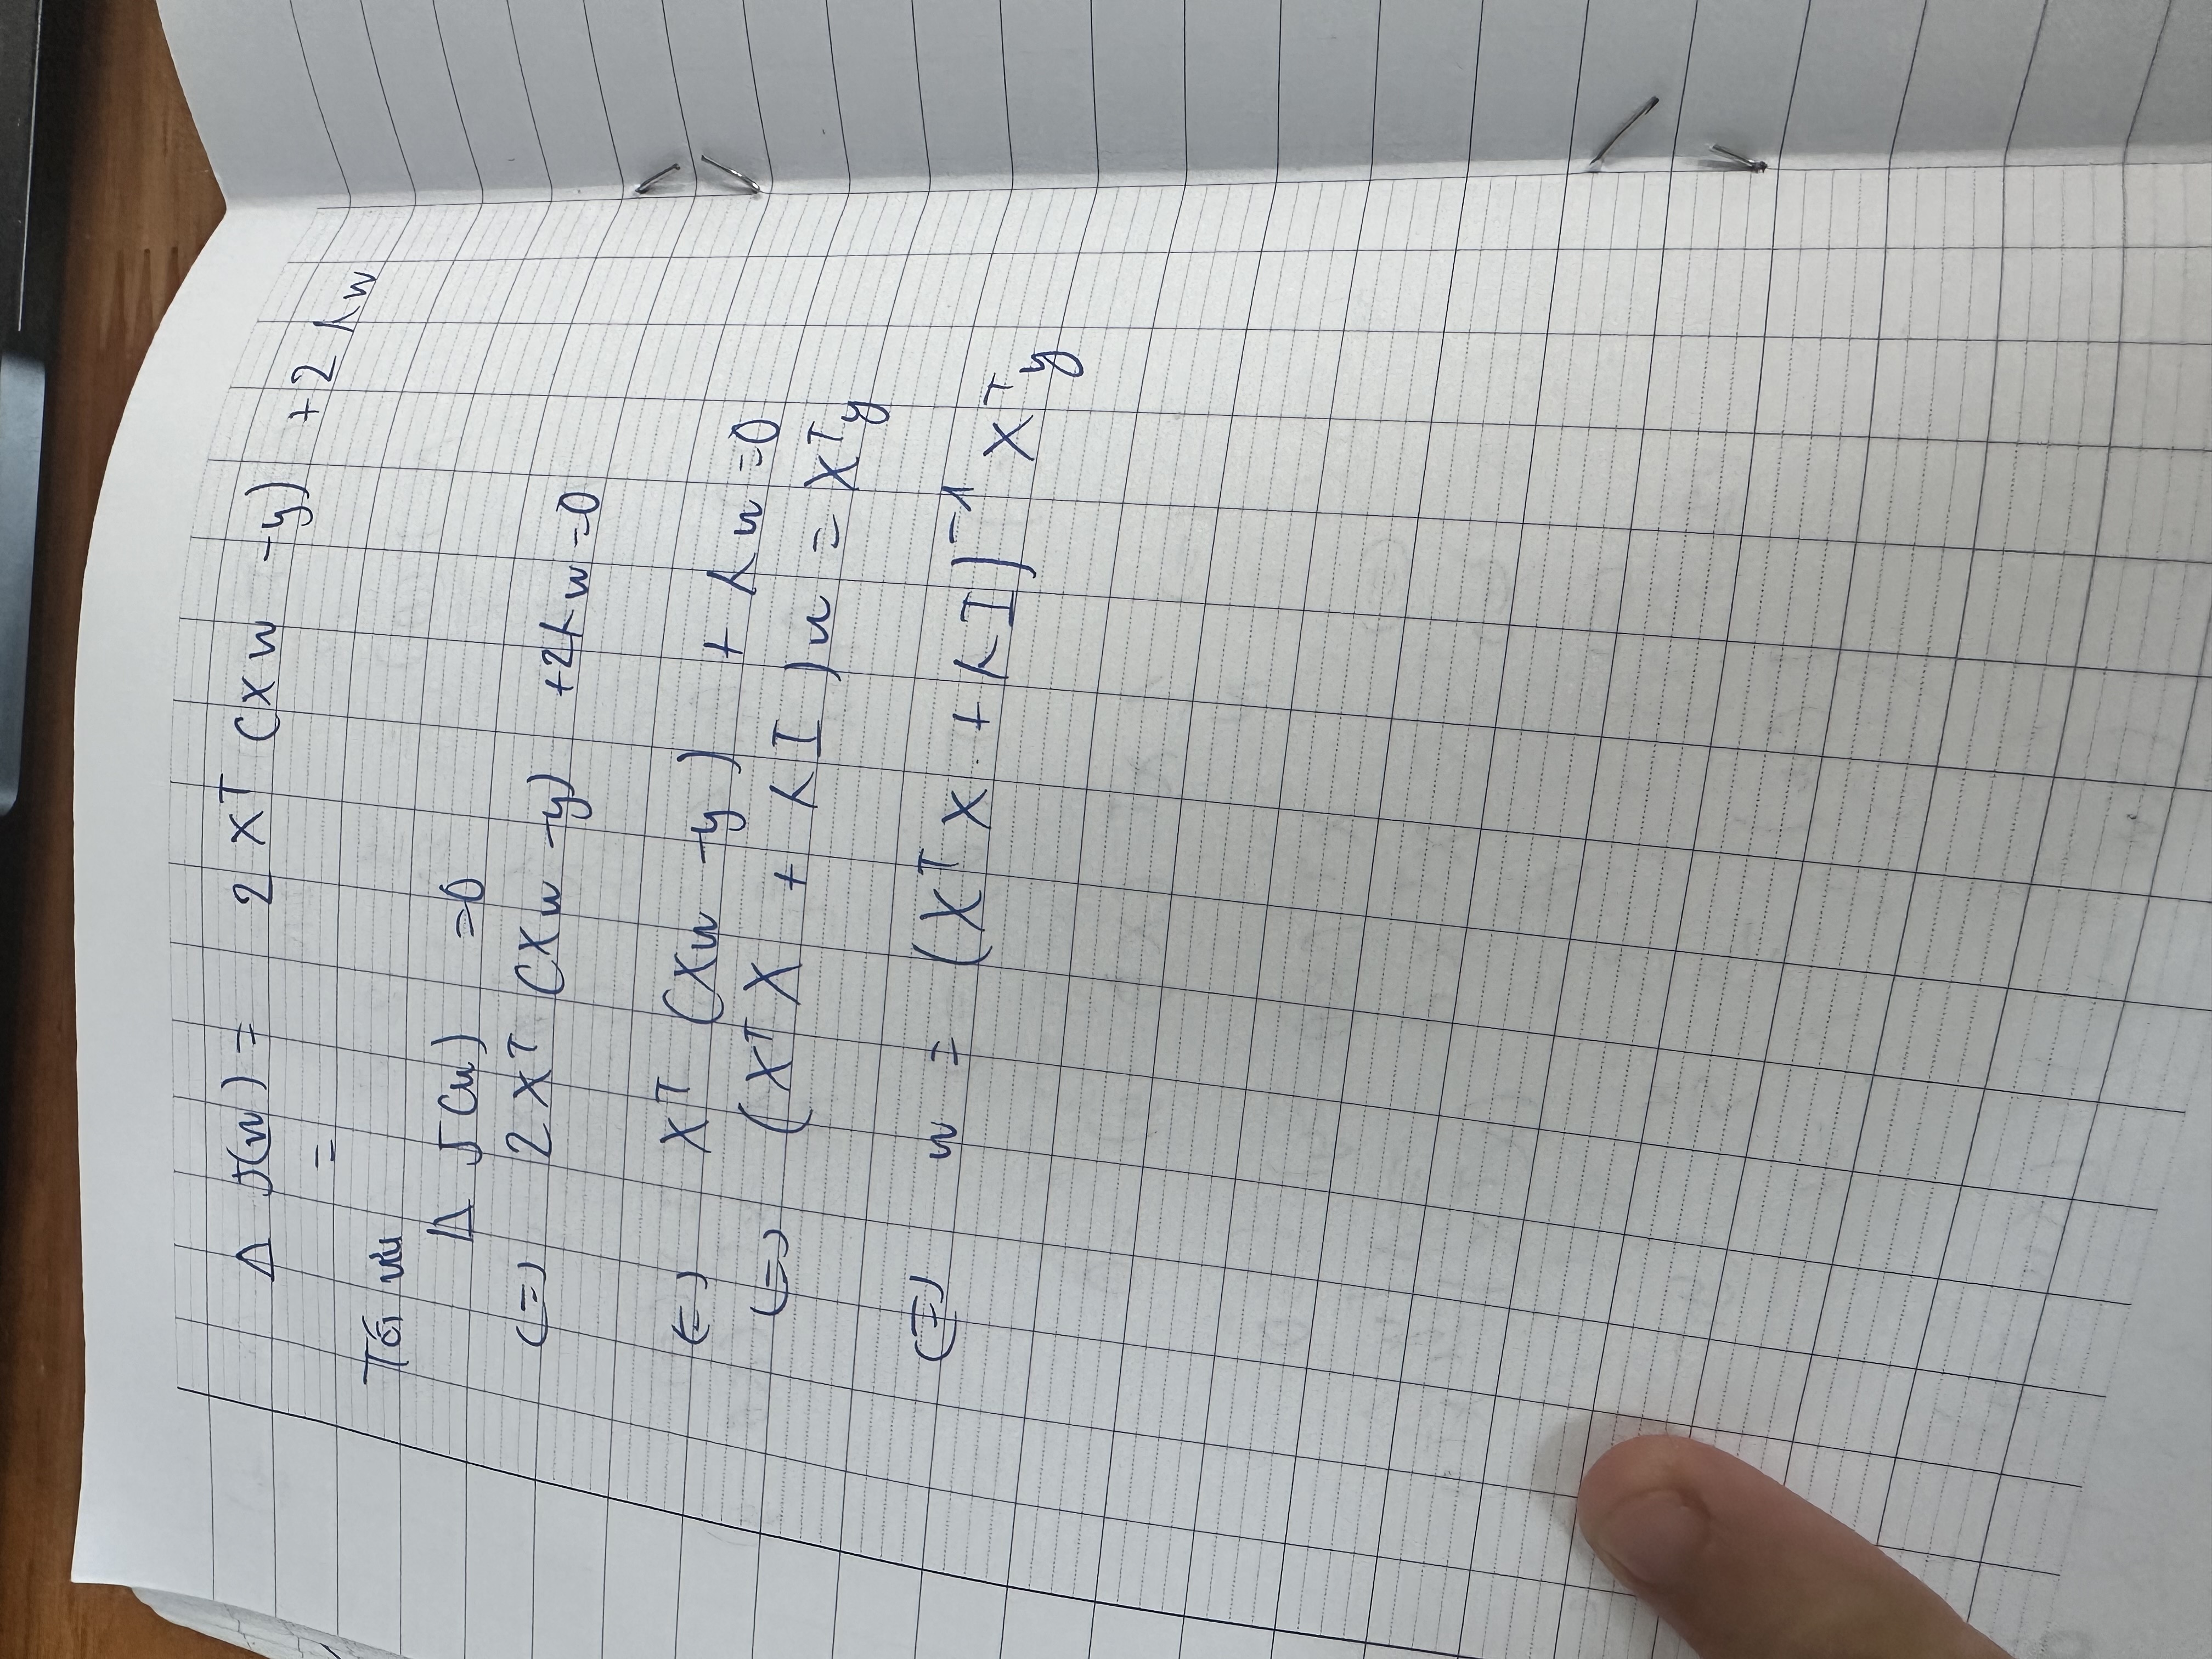 Δ J(w) = 2 X^T (Xw - y) + 2λw
=
Tối ưu
Δ J(w) = 0
(=) 2X^T (Xw - y) + 2λw = 0
(=) X^T (Xw - y) + λw = 0
(=) (X^T X + λI) w = X^T y
(=) w = (X^T X + λI)^-1 X^T y